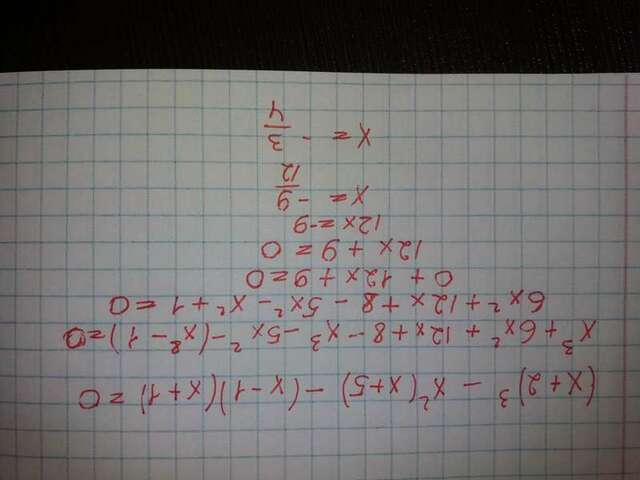 (x+2)³ - x²(x+5) - (x-1)(x+1) = 0
x³ + 6x² + 12x + 8 - x³ - 5x² - (x² - 1) = 0
6x² + 12x + 8 - 5x² - x² + 1 = 0
0 + 12x + 9 = 0
12x + 9 = 0
12x = -9
x = -9/12
x = -3/4